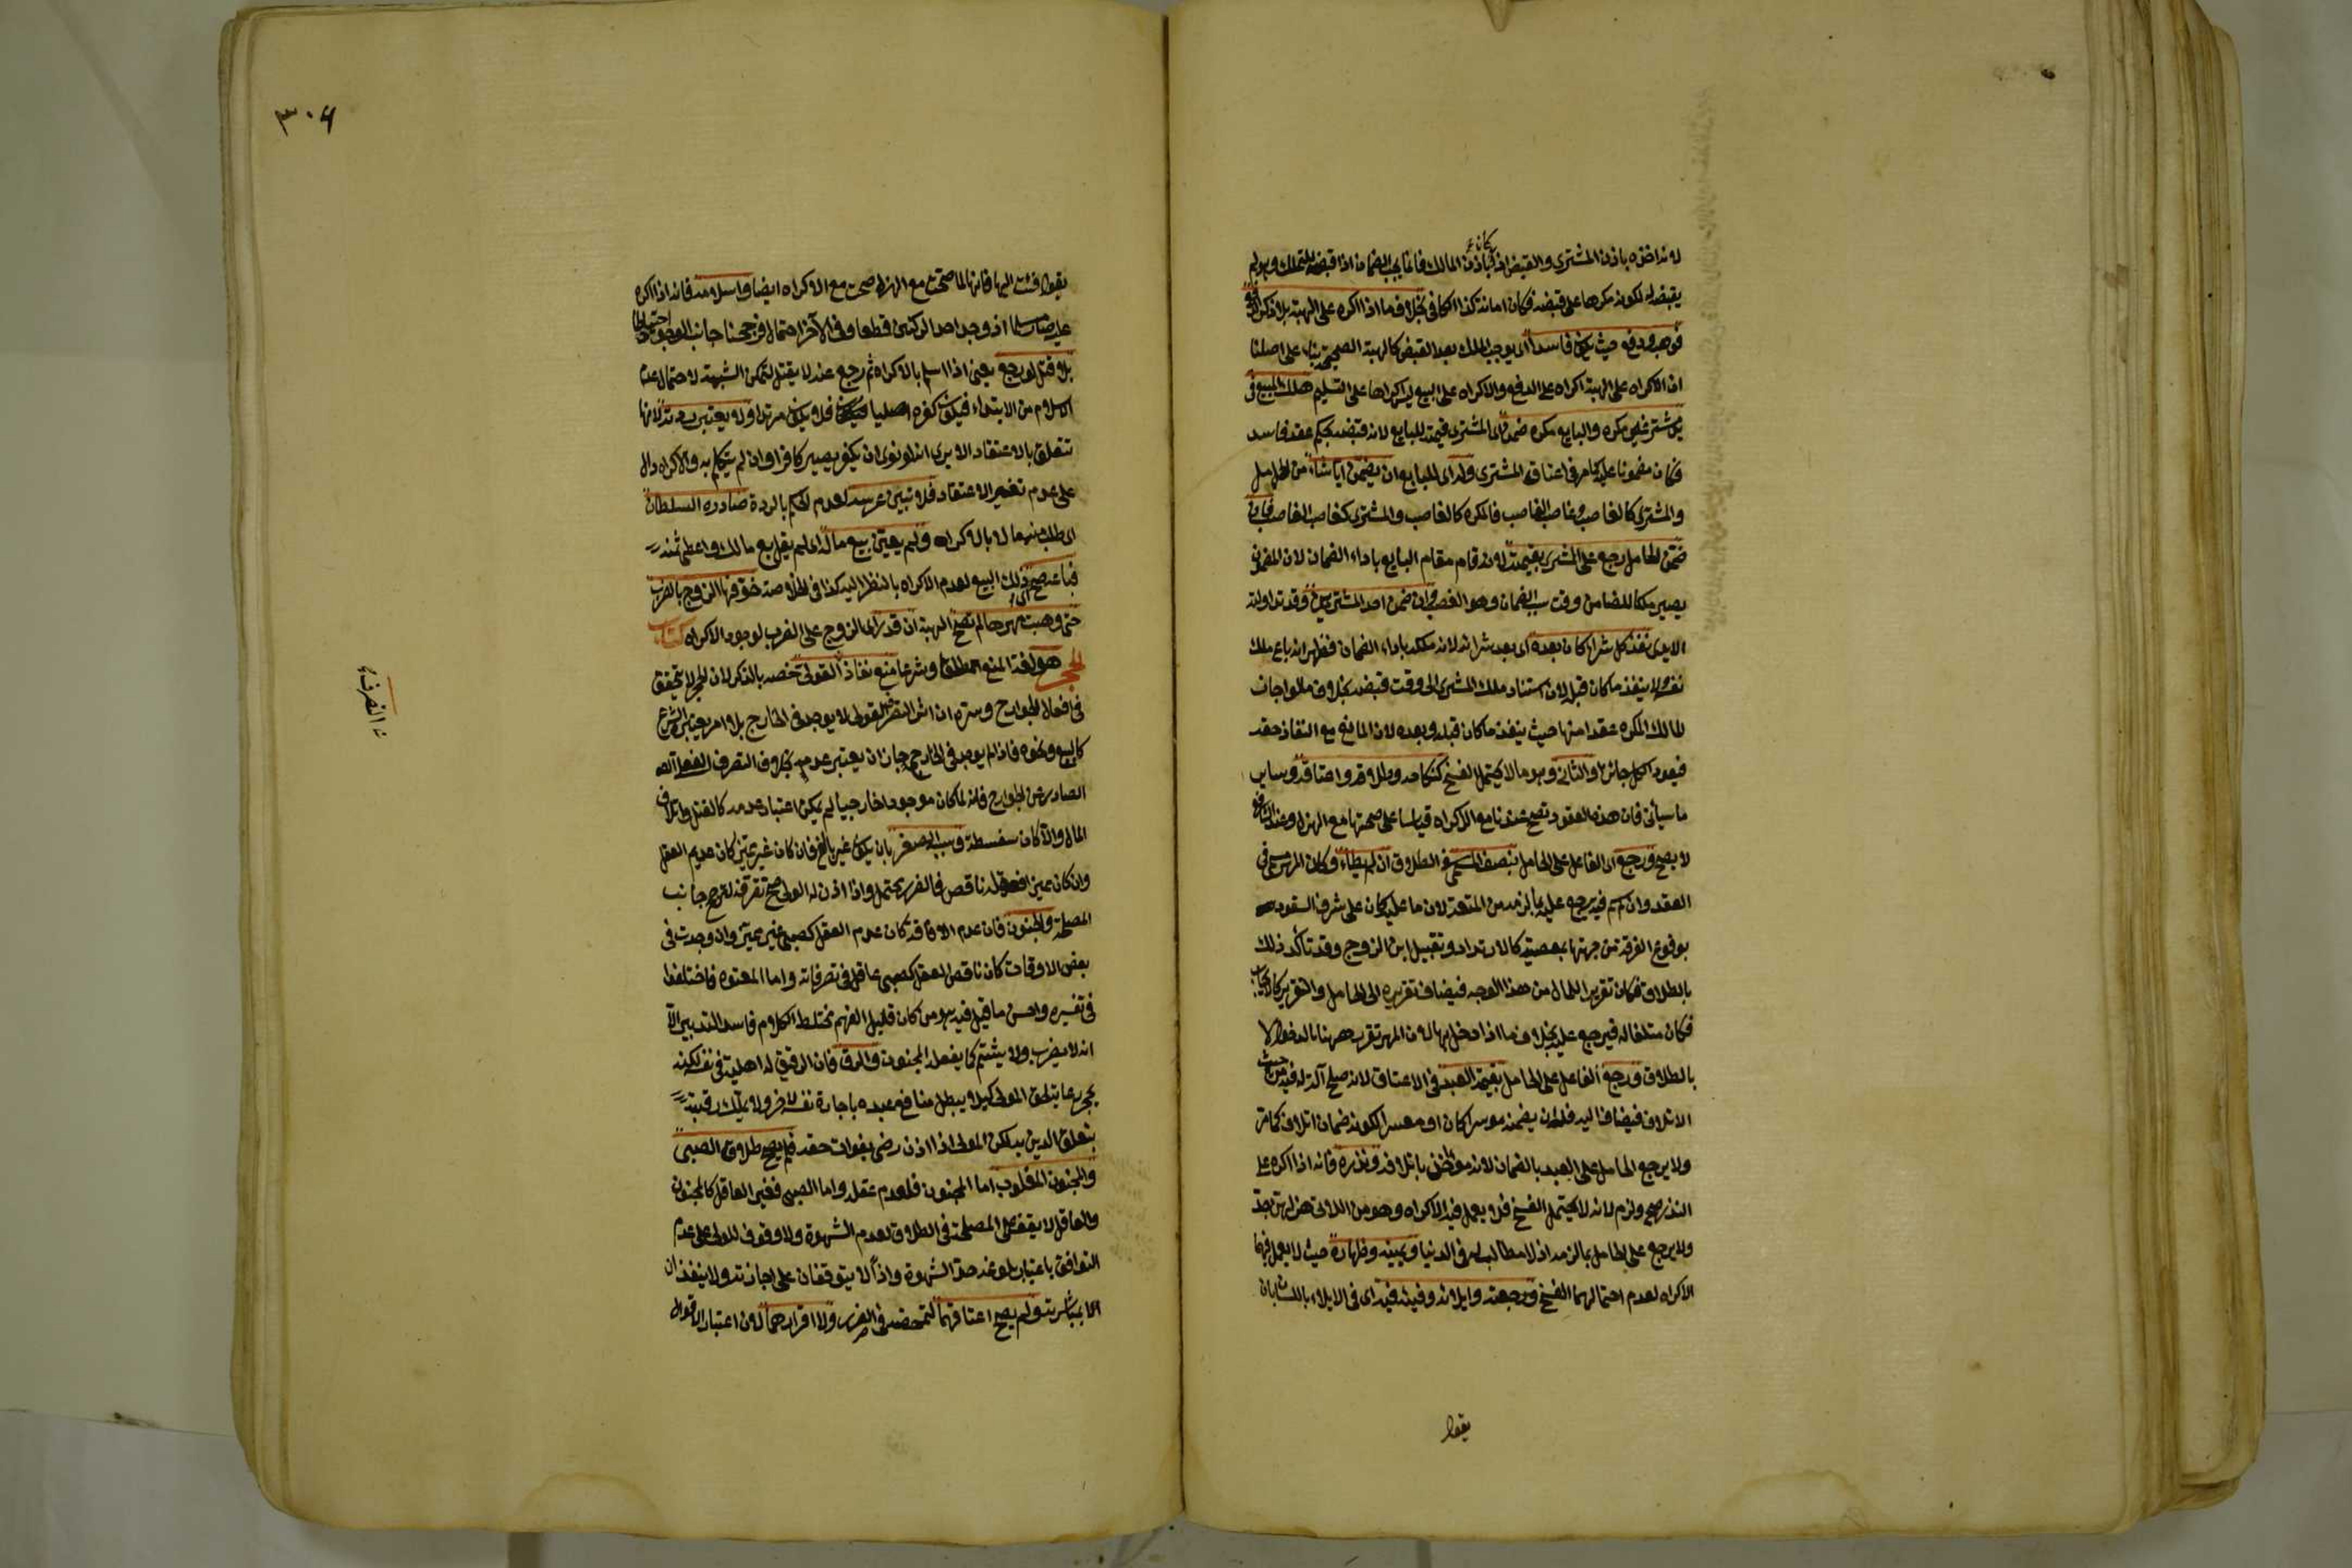 لانه اخذه باذن المشترى والقبض اذا كان باذن المالك فانما يجب الضمان اذا قبضه للتملك وهو لم
يقبضه له لكونه مكرها على قبضه فكان امانة كذا فى الكافى بخلاف ما اذا اكره على الهبة بلا ذكر الدفع
فوهب ودفع حيث يكون فاسدا اى يوجب الملك بعد القبض كالهبة الصحيحة بناء على اصلنا
ان الاكراه على الهبة اكراه على الدفع والاكراه على البيع ليس اكراها على التسليم هلك المبيع فى
يد مشتر غير مكره والبايع مكره ضمن اى المشترى قيمته للبايع لانه قبضه بحكم عقد فاسد
فكان مضمونا عليه كما مر فى اعتاق المشترى وله اى للبايع ان يضمن ايا شاء من الحامل
والمشترى كالغاصب وغاصب الغاصب فالمكره كالغاصب والمشترى كغاصب الغاصب فان
ضمن الحامل رجع على المشترى بقيمته لانه قام مقام البايع باداء الضمان لان المضمون
يصير ملكا للضامن وقت سبب الضمان وهو الغصب وان ضمن احد المشتريين وقد تداولته
الايدى نفذ كل شراء كان بعده اى بعد شرائه لانه ملكه باداء الضمان فظهر انه باع ملك
نفسه ولا ينفذ ما كان قبله لان استناد ملك المشترى الى وقت قبضه بخلاف ما لو اجاز
المالك المكره عقدا منها حيث ينفذ ما كان قبله وبعده لان المانع مع النفاذ حقه
فيعود الكل جائزا والثانى وهو ما لا يحتمل الفسخ كنكاحه وطلاقه واعتاقه وساير
ما سيأتى فان هذه العقود تصح عندنا مع الاكراه قياسا على صحتها مع الهزل وعند الشافعى
لا يصح ورجع اى الفاعل على الحامل بنصف المسمى فى الطلاق ان لم يطأ وكان المهر مسمى فى
العقد وان لم يسم فيه يرجع عليه بما لزمه من المتعة لان ما عليه كان على شرف السقوط
بوقوع الفرقة من جهتها بمعصية كالارتداد وتقبيل ابن الزوج وقد تأكد ذلك
بالطلاق فكان تقريرا للمال من هذا الوجه فيضاف تقريره الى الحامل والتقرير كالايجاب
فكان متلفا له فيرجع عليه بخلاف ما اذا دخل بها لان المهر تقرر ههنا بالدخول لا
بالطلاق ورجع الفاعل على الحامل بقيمة العبد فى الاعتاق لانه صلح آلة له فيه من حيث
الاتلاف فيضاف اليه فله ان يضمنه موسرا كان او معسرا لكونه ضمان اتلاف كما مر
ولا يرجع الحامل على العبد بالضمان لانه مؤاخذ باتلافه ونذره فانه اذا اكره على
النذر صح ولزم لانه لا يحتمل الفسخ فلا يعمل فيه الاكراه وهو من اللاتى هزلهن جد
ولا يرجع على الحامل بما لزمه اذ لا مطالب له فى الدنيا ويمينه وظهاره حيث لا يعمل فيهما
الاكراه لعدم احتمالهما الفسخ ورجعته وايلائه وفيئه فيه اى فى الايلاء باللسان بان
يقول
٣٠٦
يقول فئت اليها فانها لما صحت مع الهزل صحت مع الاكراه ايضا واسلامه فانه اذا اكره
عليه صار مسلما اذ وجد احد الركنين قطعا وفى الآخر احتمال فرجحنا جانب الوجود احتياطا
بلا قتل لو رجع يعنى اذا اسلم بالاكراه ثم رجع عنه لا يقتل لتمكن الشبهة لاحتمال عدم
الاسلام من الابتداء فيكون كفره اصليا فلا يكون مرتدا ولا يعتبر ردته لانها
تتعلق بالاعتقاد الا يرى انه لو نوى ان يكفر يصير كافرا وان لم يتكلم به والاكراه دال
على عدم تغير الاعتقاد فلا تبين عرسه لعدم الحكم بالردة صادره السلطان
اى طلب منه مالا بالاكراه ولم يعين بيع ماله اى لم يقل بع مالك واعطى ثمنه
فباعه صح ذلك البيع لعدم الاكراه بالنظر اليه كذا فى الخلاصة خوفها الزوج بالضرب
حتى وهبت مهرها لم تصح الهبة ان قدر اى الزوج على الضرب لوجود الاكراه كتاب
الحجر هو لغة المنع المطلق وشرعا منع نفاذ القولى خصه بالذكر لان الحجر لا يتحقق
فى افعال الجوارح وسره ان اثر التصرف القولى لا يوجد فى الخارج بلا امر يعتبره الشرع
كالبيع ونحوه فاذا لم يوجد فى الخارج جاز ان يعتبر عدمه بخلاف التصرف الفعلى
الصادر عن الجوارح فانه لما كان موجودا خارجيا لم يمكن اعتبار عدمه كالقتل واتلاف
المال والا كان سفسطة وسببه الصغر بان يكون غير بالغ فان كان غير مميز كان عديم العقل
وان كان مميزا فعقله ناقص فالضرر محتمل واذا اذن له الولى صح تصرفه لترجح جانب
المصلحة والجنون فان عدم الافاقة كان عديم العقل كصبى غير مميز وان وجدت فى
بعض الاوقات كان ناقص العقل كصبى عاقل فى تصرفاته واما المعتوه فاختلفوا
فى تفسيره واحسن ما قيل فيه هو من كان قليل الفهم مختلط الكلام فاسد التدبير الا
انه لا يضرب ولا يشتم كما يفعل المجنون والرق فان الرقيق له اهلية فى نفسه لكنه
يحجر رعاية لحق المولى كيلا يبطل منافع عبده باجارة نفسه لآخر ولا يملك رقبته
بتعلق الدين به لكن المولى اذا اذن رضى بفوات حقه فلم يصح طلاق الصبى
والمجنون المغلوب اما المجنون فلعدم عقله واما الصبى فغير العاقل كالمجنون
والعاقل لا يقف على المصلحة فى الطلاق لعدم الشهوة ولا وقوف للولى على عدم
التوافق باعتبار بلوغه حد الشهوة واذا لا يتوقفان على اجازته ولا ينفذان
الا بمباشرته ولم يصح اعتاقهما لتمحضه فى الضرر ولا اقرارهما لان اعتبار الاقوال
التصرف